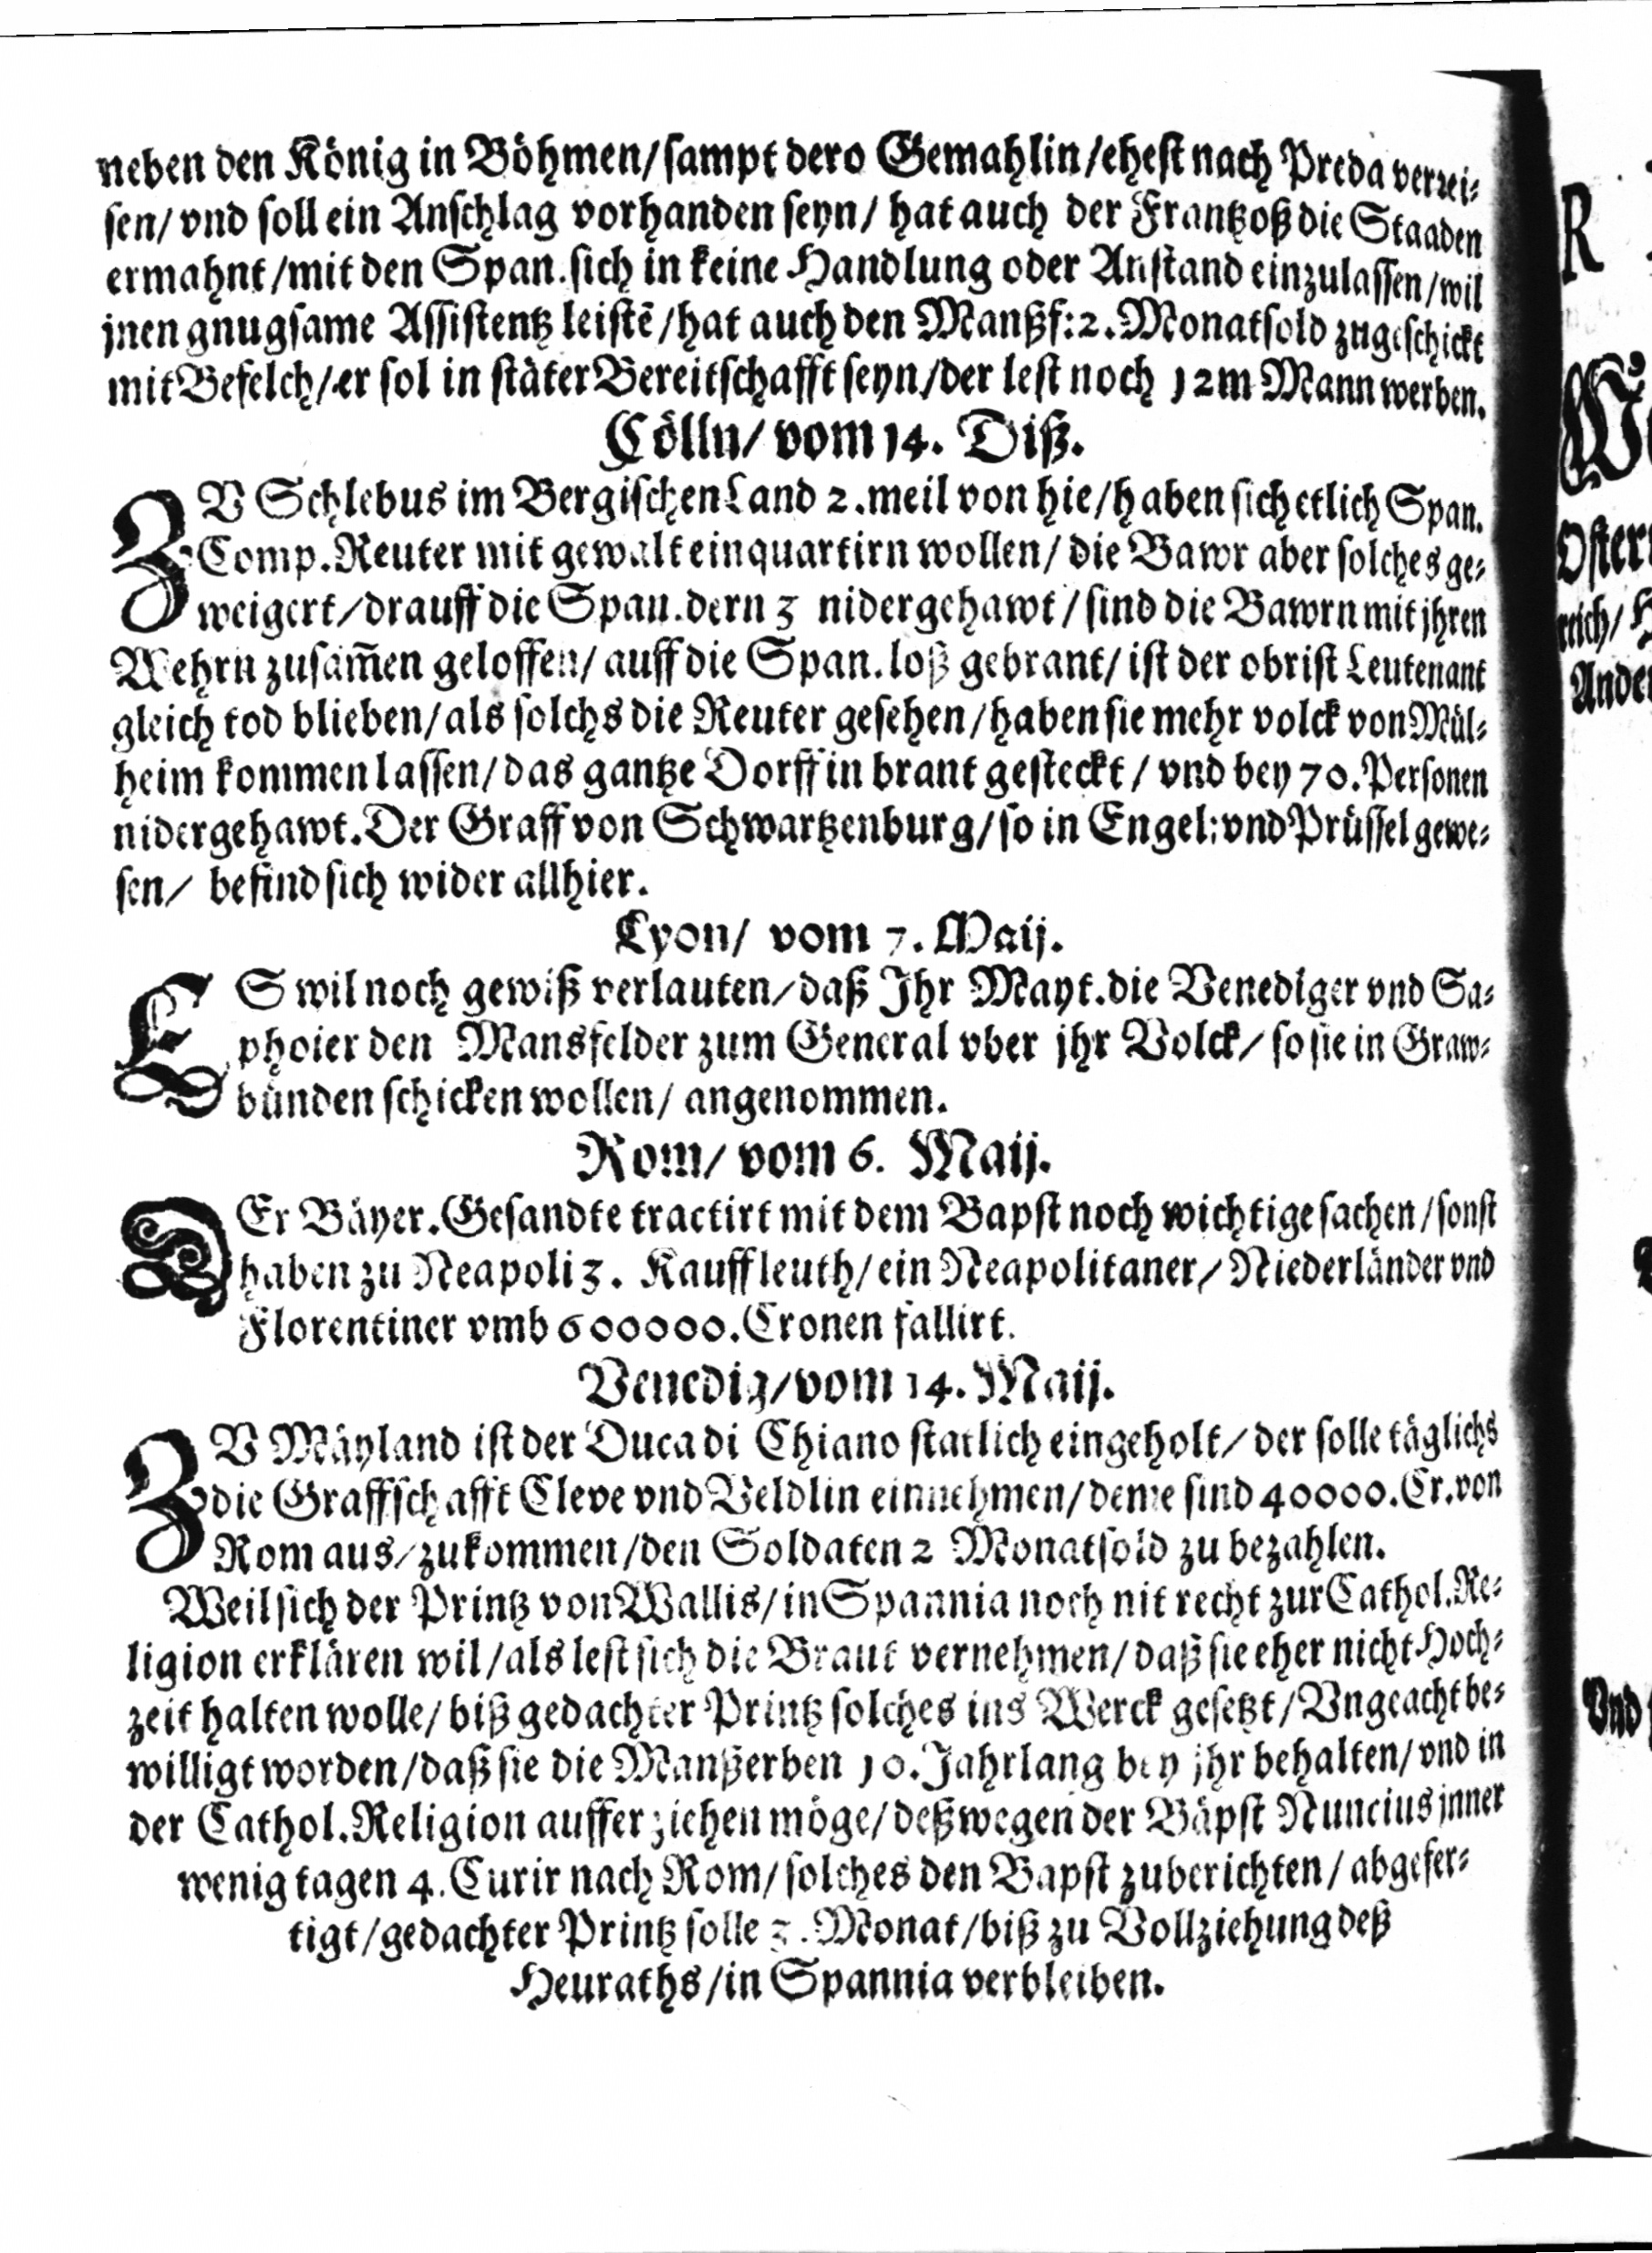 neben den König in Böhmen/sampt dero Gemahlin/ehest nach Preda verrei-
sen/ vnd soll ein Anschlag vorhanden seyn/ hat auch der Frantzoß die Staaden
ermahnt/mit den Span. sich in keine Handlung oder Anstand einzulassen/wil
jnen gnugsame Assistentz leistē/hat auch den Manßf: 2. Monatsold zugeschickt
mit Befelch/er sol in stäter Bereitschafft seyn/der lest noch 12m Mann werben.
Cölln/ vom 14. Diß.
ZV Schlebus im Bergischen Land 2. meil von hie/haben sich etlich Span.
Comp. Reuter mit gewalt einquartirn wollen/ die Bawr aber solches ge-
weigert/drauff die Span. dern 3 nidergehawt/ sind die Bawrn mit jhren
Wehrn zusam̄en geloffen/ auff die Span. loß gebrant/ ist der obrist Leutenant
gleich tod blieben/als solchs die Reuter gesehen/haben sie mehr volck von Mül-
heim kommen lassen/das gantze Dorff in brant gesteckt/ vnd bey 70. Personen
nidergehawt. Der Graff von Schwartzenburg/so in Engel: vnd Prüssel gewe-
sen/ befind sich wider allhier.
Lyon/ vom 7. Maij.
ES wil noch gewiß verlauten/daß Ihr Mayt. die Venediger vnd Sa-
phoier den Mansfelder zum General vber jhr Volck/ so sie in Graw-
bünden schicken wollen/ angenommen.
Rom/ vom 6. Maij.
DEr Bäyer. Gesandte tractirt mit dem Bapst noch wichtige sachen/sonst
haben zu Neapoli 3. Kauffleuth/ein Neapolitaner/Niederländer vnd
Florentiner vmb 600000. Cronen fallirt.
Venedig/vom 14. Maij.
ZV Mäyland ist der Duca di Chiano statlich eingeholt/der solle täglichs
die Graffschafft Cleve vnd Veldlin einnehmen/deme sind 40000. Cr. von
Rom aus/zukommen/den Soldaten 2 Monatsold zu bezahlen.
Weil sich der Printz von Wallis/in Spannia noch nit recht zur Cathol. Re-
ligion erklären wil/als lest sich die Braut vernehmen/daß sie eher nicht Hoch-
zeit halten wolle/biß gedachter Printz solches ins Werck gesetzt/Vngeacht be-
willigt worden/daß sie die Manßerben 10. Jahrlang bey jhr behalten/vnd in
der Cathol. Religion aufferziehen möge/deßwegen der Bäpst Nuncius jnner
wenig tagen 4. Curir nach Rom/solches den Bapst zuberichten/abgefer-
tigt/gedachter Printz solle 3. Monat/biß zu Vollziehung deß
Heuraths/in Spannia verbleiben.